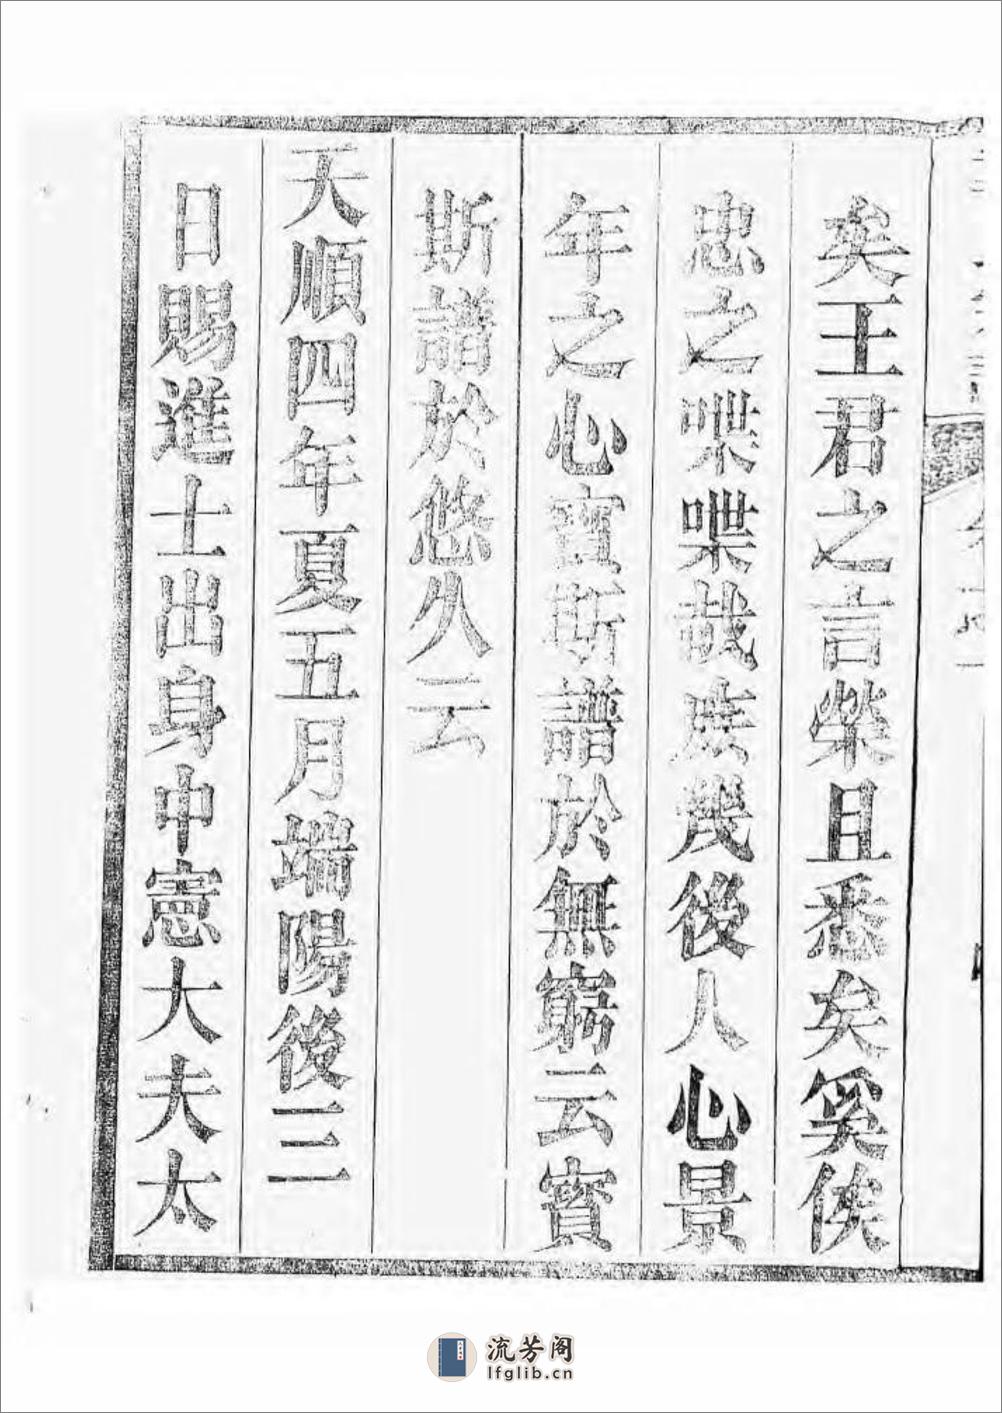 矣王君之言榮且悉矣奚俟
忠之喋喋哉庻幾後人心景
年之心寶斯譜於無窮云寶
斯譜於悠久云
天順四年夏五月端陽後三
日賜進士出身中憲大夫太
流芳阁
lfglib.cn